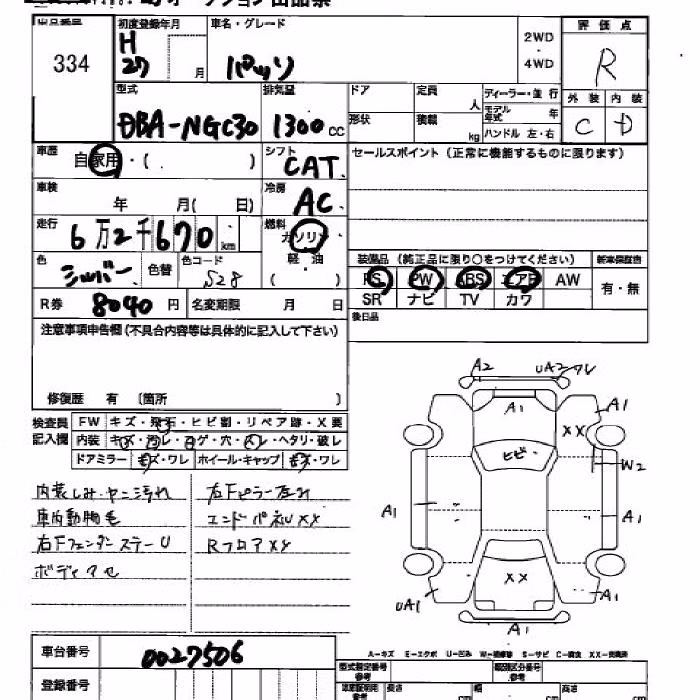 334
初度登録年月
H
27 月
車名・グレード
パッソ
2WD
・
4WD
評価点
R
外装 内装
C D
型式
DBA-NGC30
排気量
1300 cc
ドア 定員 人
形状 積載 kg
ディーラー・並行
モデル年式 年
ハンドル 左・右
車歴
自家用・( )
シフト
CAT
セールスポイント(正常に機能するものに限ります)
車検
年 月( 日)
冷房
AC
走行
6万2千670 km
燃料
ガソリン
軽油
( )
色
シルバー
色替
色コード
S28
装備品(純正品に限り○をつけてください)
新車保証書
PS PW ABS エアB AW
SR ナビ TV カワ
有・無
R券 8040 円
名変期限 月 日
後日品
注意事項申告欄(不具合内容等は具体的に記入して下さい)
修復歴 有 〔箇所 〕
検査員記入欄
FW キズ・飛石・ヒビ割・リペア跡・X要
内装 キズ・汚レ・コゲ・穴・スレ・ヘタリ・破レ
ドアミラー キズ・ワレ ホイール・キャップ キズ・ワレ
内装しみ・ヤニ汚れ
車内動物毛
右Fフェンダーステー U
ボディアセ
エンドパネルXX
RフロアXX
A2
UA2ワレ
A1
A1
XX
ヒビ
W2
A1
A1
XX
UA1
A1
A1
A-キズ E-エクボ U-凹み W-補修跡 S-サビ C-腐食 XX-交換済
車台番号
0027506
登録番号
型式指定番号
参考
類別区分番号
参考
長さ cm
幅 cm
高さ cm